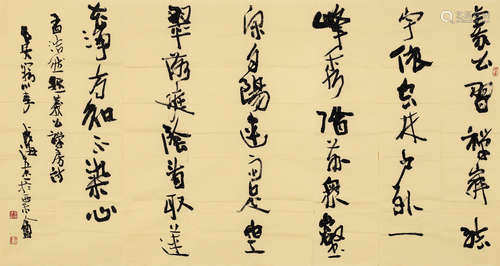 義公習禪寂結
宇依空林户外一
峰秀階前衆壑
深夕陽連雨足空
翠落庭陰看取蓮
花净方知不染心
孟浩然題義公禪房詩